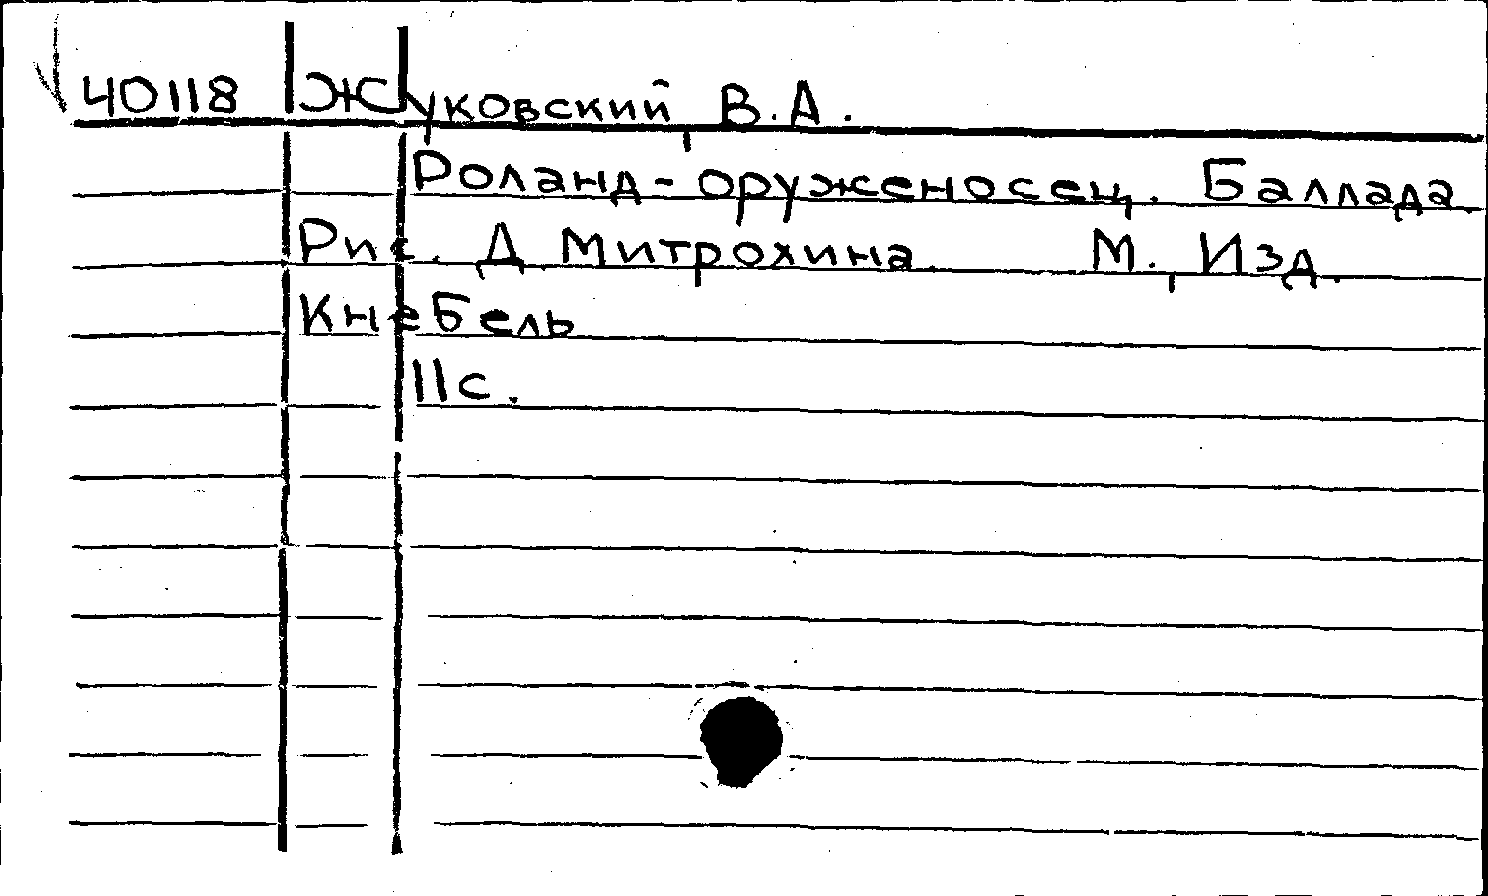 40118 Жуковский, В.А.
Роланд-оруженосец. Баллада.
Рис. Д. Митрохина. М., Изд.
Кнебель
11с.